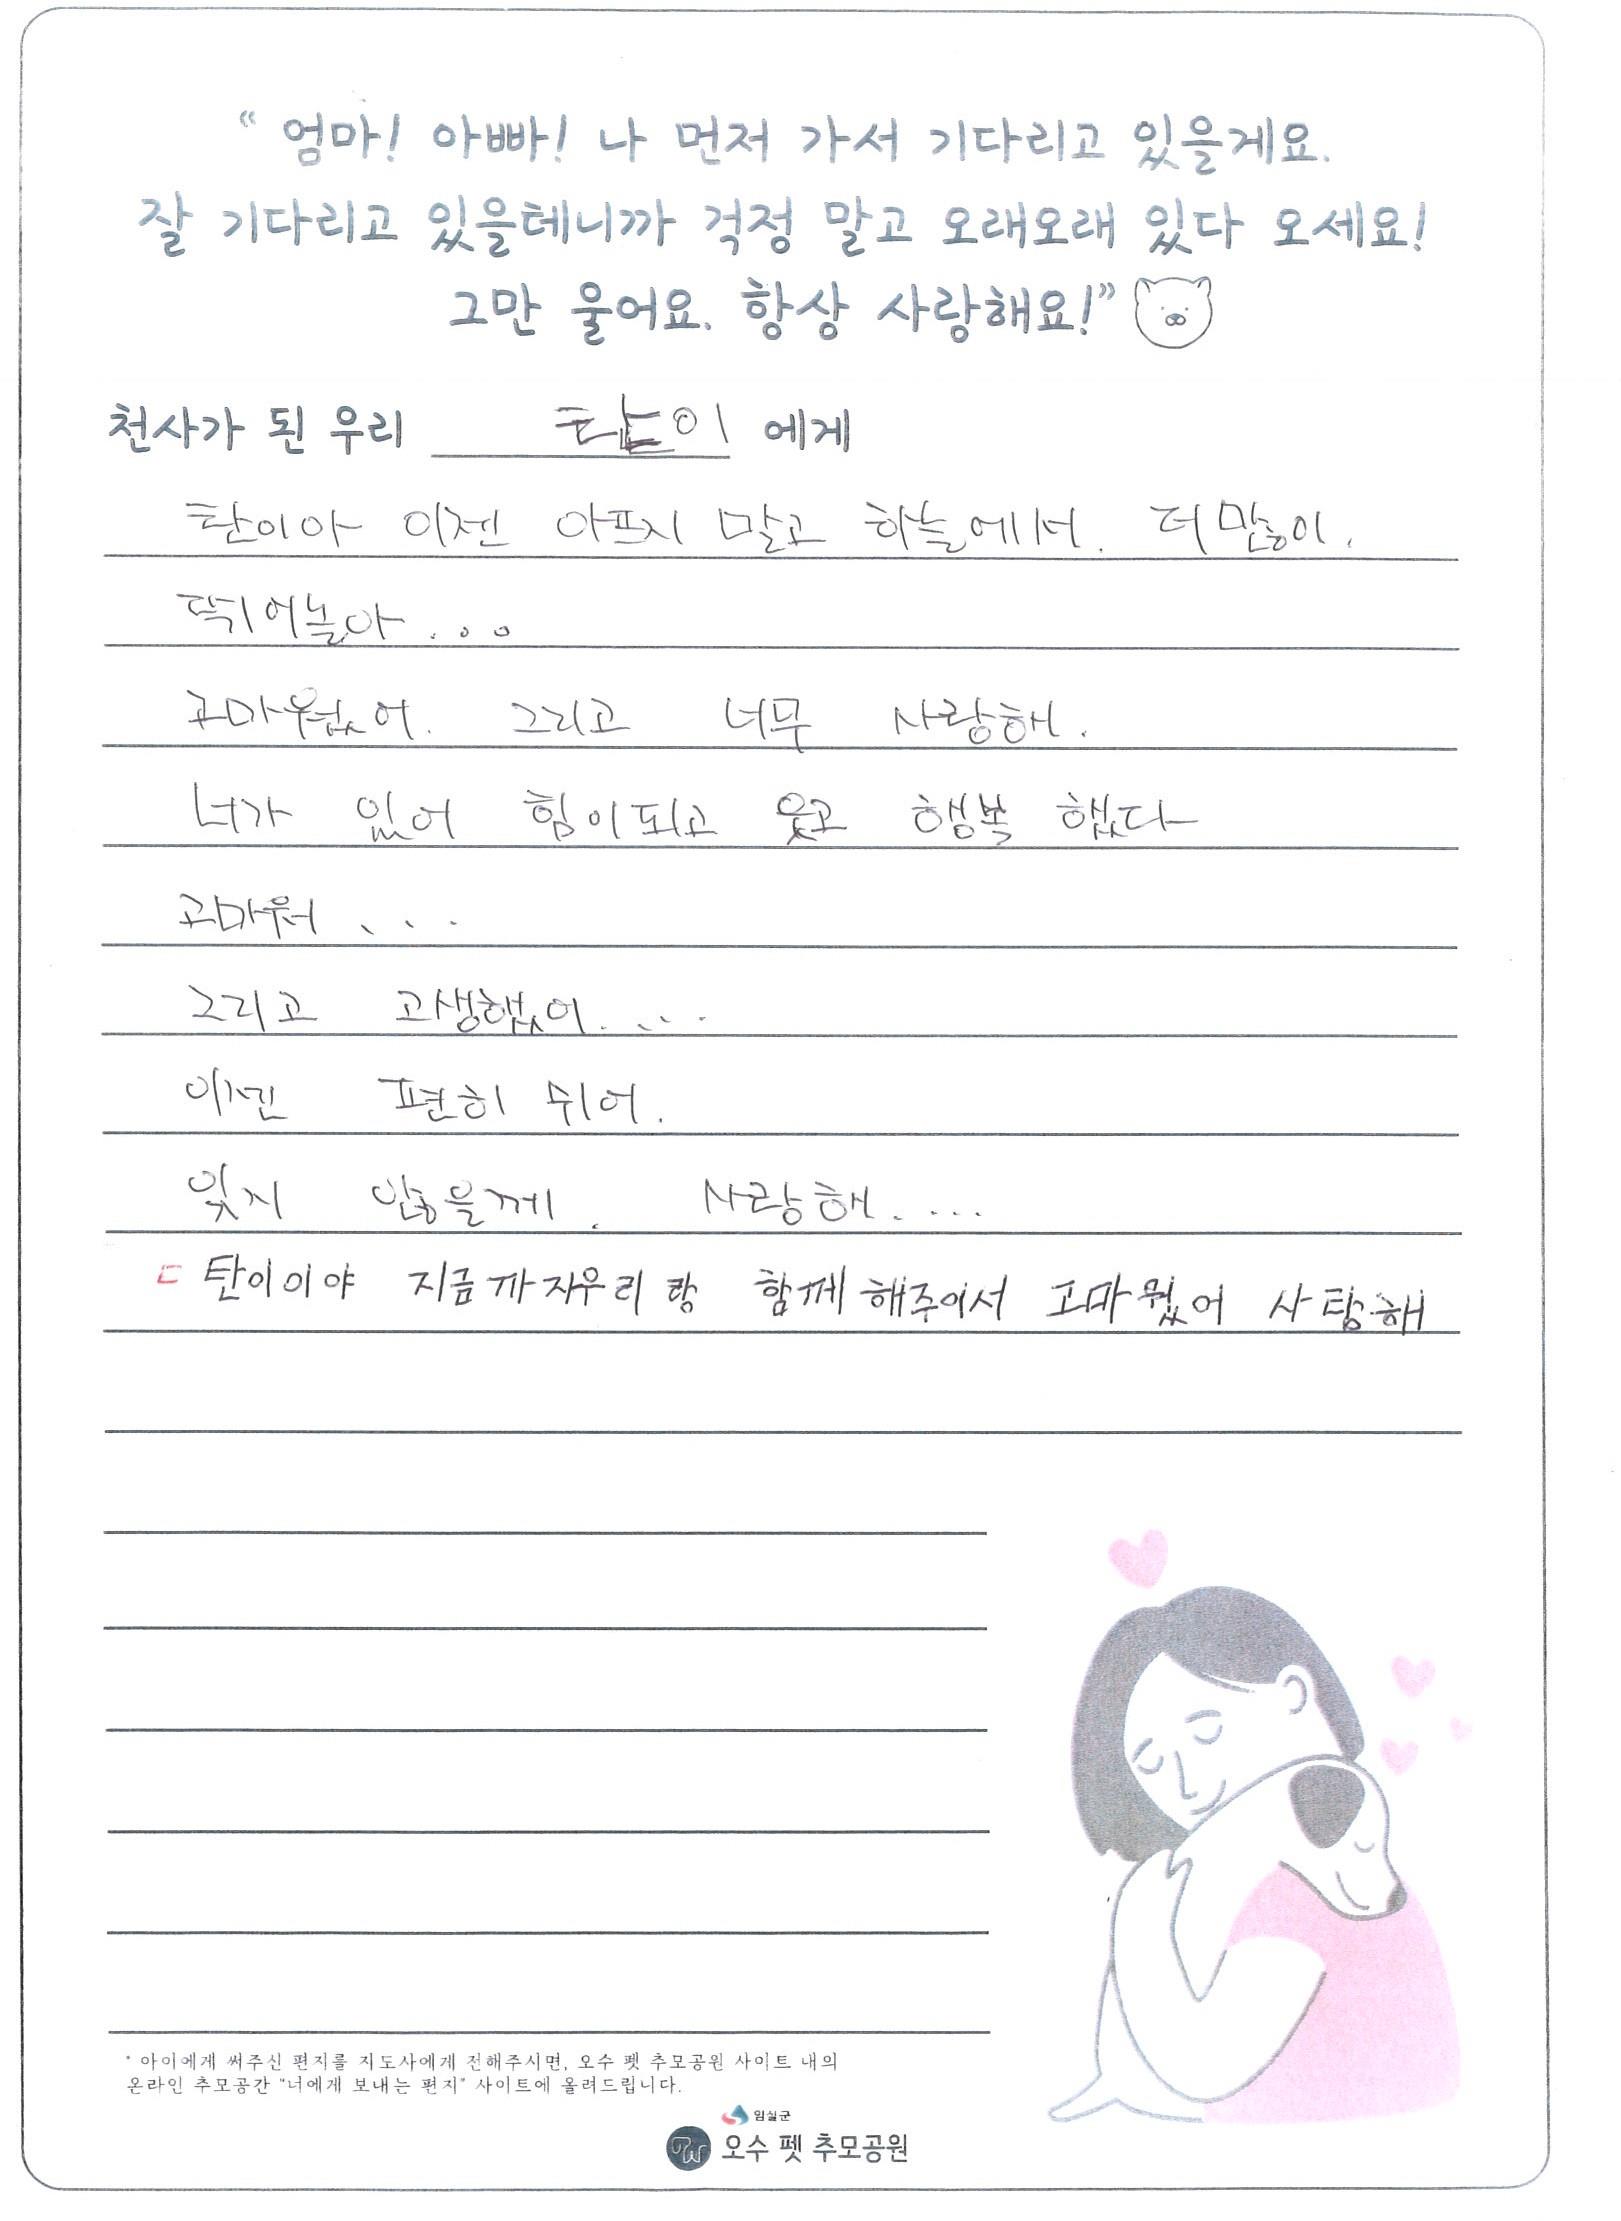 “ 엄마! 아빠! 나 먼저 가서 기다리고 있을게요.
잘 기다리고 있을테니까 걱정 말고 오래오래 있다 오세요!
그만 울어요. 항상 사랑해요!”
천사가 된 우리 탄이 에게
탄이아 이젠 아프지 말고 하늘에서. 더 많이.
뛰어놀아 . . .
고마웠어. 그리고 너무 사랑해.
너가 있어 힘이되고 웃고 행복 했다
고마워 . . .
그리고 고생했어. . . .
이젠 편히 쉬어.
잊지 않을께. 사랑해. . . .
ㄷ 탄이이야 지금까지우리랑 함께해주어서 고마웠어 사랑해
* 아이에게 써주신 편지를 지도사에게 전해주시면, 오수 펫 추모공원 사이트 내의
온라인 추모공간 "너에게 보내는 편지" 사이트에 올려드립니다.
임실군
오수 펫 추모공원